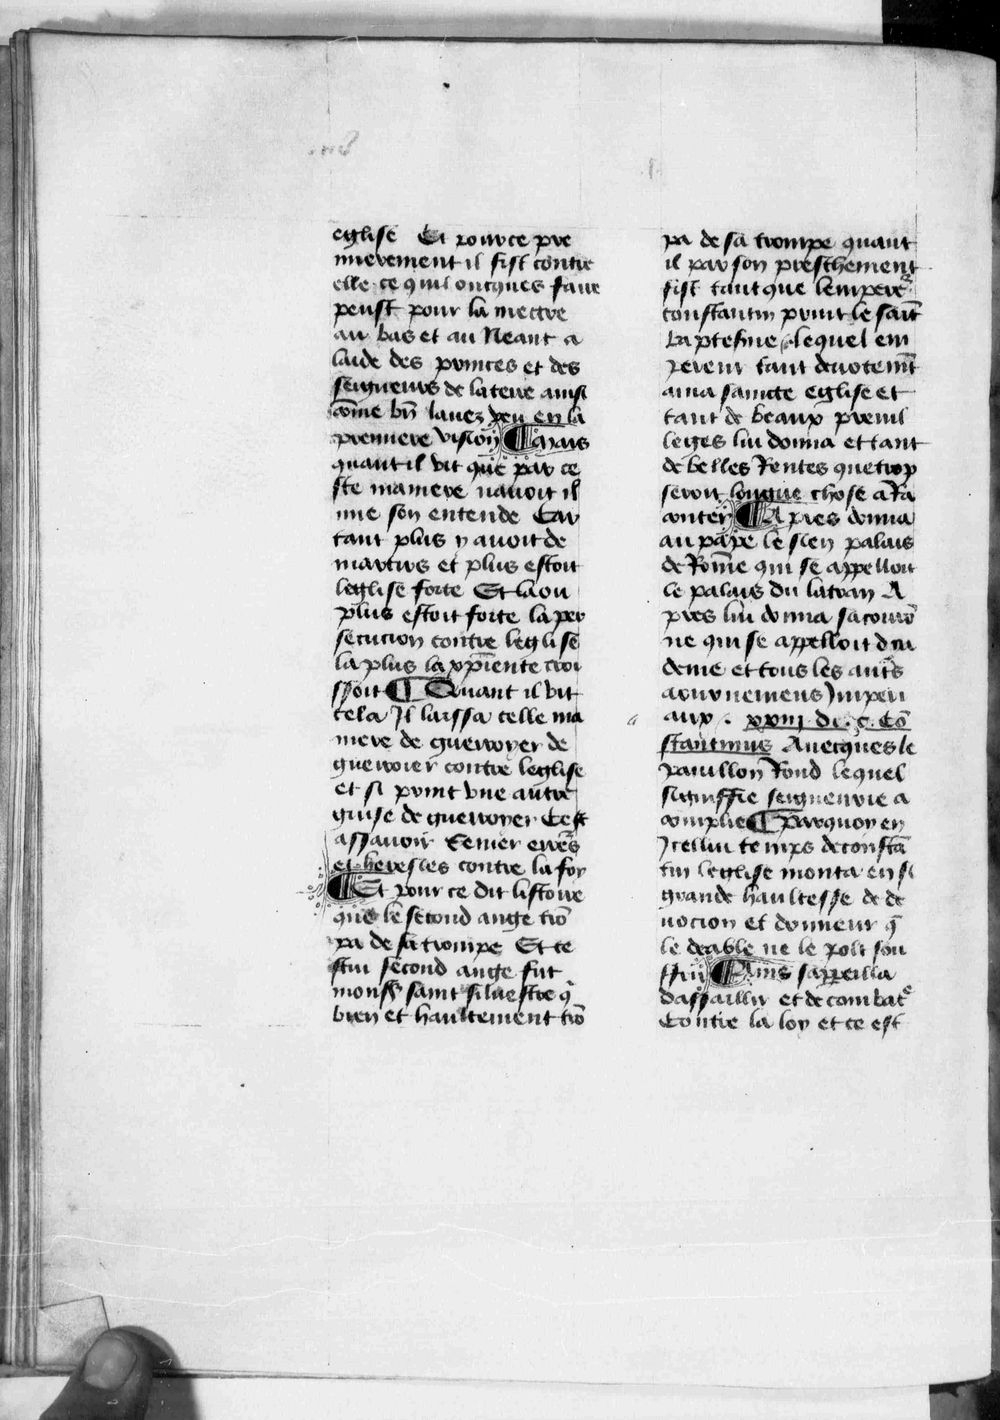 eglise Et pource pre
mierement il fist contre
elle ce quil oncques faire
peust pour la mectre
au bas et au Neant a
laide des princes et des
seigneurs de la terre ainsi
cōme bn̄ lauez veu en la
premiere vision ¶ Mais
quant il vit que par ce
ste maniere nauoit il
mie son entende Car
tant plus y auoit de
martirs et plus estoit
leglise forte Et la ou
plus estoit forte la per
secucion contre leglise
la plus la xp̄iente croi
ssoit ¶ Quant il vit
cela Jl laissa celle ma
niere de guerroyer de
guerroier contre leglise
et si print vne autre
guise de guerroyer Cest
assauoir semer erre͛s
et heresies contre la foy
¶ Et pour ce dit listoire
que le second ange trō
pa de sa trompe Et ce
stui second ange fut
monss͛ saint siluestre q̄
bien et haultement trō
pa de sa trompe quant
il par son preschement
fist tant que lempere͛
constantin print le sait̄
baptesme lequel em
pereur tant deuotemt̄
ama saincte eglise et
tant de beaux preuil
leges lui donna et tant
de belles Rentes que trop
seroit longue chose a Ra
conter ¶ Apres donna
au pape le sien palais
de Rōme qui se appelloit
le palais du latran A
pres lui donna sa courō
ne qui se appelloit dia
deme et tous les autr̄s
aournemens Jmperi
aux . xxiij. di. c. Cō
stantinus Auecques le
pauillon Rond lequel
signiffie seigneurie a
complie ¶ Parquoy en
Jcellui temps de constā
tin leglise monta en si
grande haultesse de de
uocion et donneur q̄
le deable ne le polt sou
ffrir ¶ Ains sappeilla
dassaillir et de combatr̄e
Contre la loy et ce est